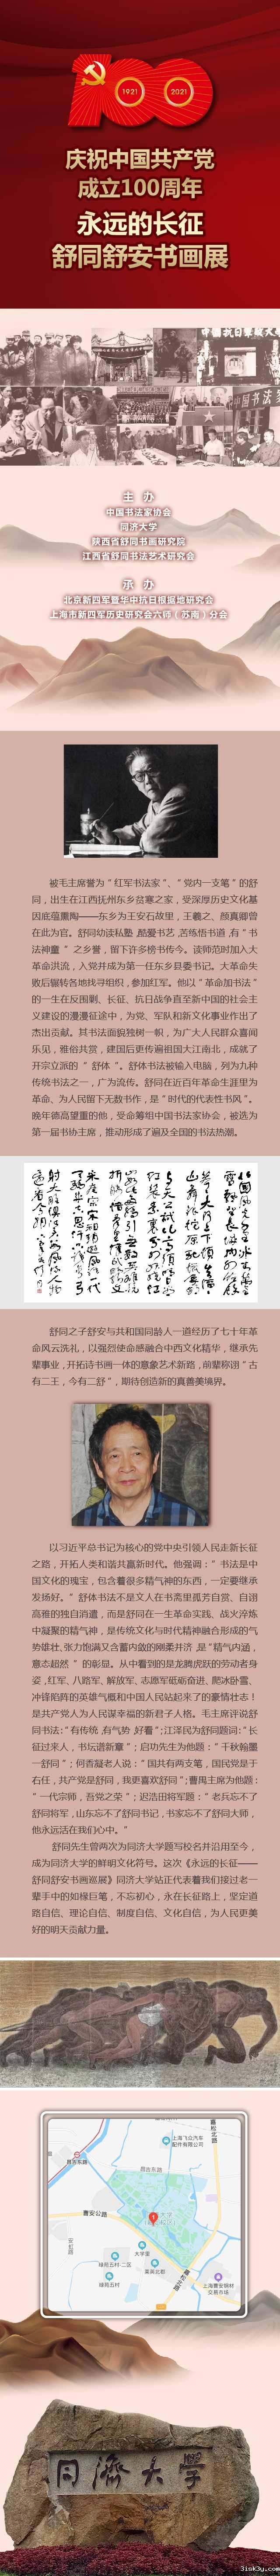 100
1921
2021
庆祝中国共产党
成立100周年
永远的长征
舒同舒安书画展
主 办
中国书法家协会
同济大学
陕西省舒同书画研究院
江西省舒同书法艺术研究会
承 办
北京新四军暨华中抗日根据地研究会
上海市新四军历史研究会六师（苏南）分会
被毛主席誉为“红军书法家”、“党内一支笔”的舒
同，出生在江西抚州东乡贫寒之家，受深厚历史文化基
因底蕴熏陶——东乡为王安石故里，王羲之、颜真卿曾
在此为官。舒同幼读私塾，酷爱书艺，苦练悟书道，有“书
法神童”之乡誉，留下许多榜书传今。读师范时加入大
革命洪流，入党并成为第一任东乡县委书记。大革命失
败后辗转各地找寻组织，参加红军。他以“革命加书法”
的一生在反围剿、长征、抗日战争直至新中国的社会主
义建设的漫漫征途中，为党、军队和新文化事业作出了
杰出贡献。其书法面貌独树一帜，为广大人民群众喜闻
乐见，雅俗共赏，建国后更传遍祖国大江南北，成就了
开宗立派的“舒体”。舒体书法被输入电脑，列为九种
传统书法之一，广为流传。舒同在近百年革命生涯里为
革命、为人民留下无数书作，是“时代的代表性书风”。
晚年德高望重的他，受命筹组中国书法家协会，被选为
第一届书协主席，推动形成了遍及全国的书法热潮。
舒同之子舒安与共和国同龄人一道经历了七十年革
命风云洗礼，以强烈使命感融合中西文化精华，继承先
辈事业，开拓诗书画一体的意象艺术新路，前辈称诩“古
有二王，今有二舒”，期待创造新的真善美境界。
以习近平总书记为核心的党中央引领人民走新长征
之路，开拓人类和谐共赢新时代。他强调：“书法是中
国文化的瑰宝，包含着很多精气神的东西，一定要继承
发扬好。”舒体书法不是文人在书斋里孤芳自赏、自诩
高雅的独自消遣，而是舒同在一生革命实践、战火淬炼
中凝聚的精气神，是传统文化与时代精神融合形成的气
势雄壮，张力饱满又含蓄内敛的刚柔并济，是“精气内涵，
意态超然”的彰显。从中看到的是龙腾虎跃的劳动者身
姿，红军、八路军、解放军、志愿军砥砺奋进、爬冰卧雪、
冲锋陷阵的英雄气概和中国人民站起来了的豪情壮志！
是共产党人为人民谋幸福的新君子人格。毛主席评说舒
同书法：“有传统，有气势，好看”；江泽民为舒同题词：“长
征过来人，书坛谱新章”；启功先生为他题：“千秋翰墨
一舒同”；何香凝老人说：“国共有两支笔，国民党是于
右任，共产党是舒同，我更喜欢舒同”；曹禺主席为他题：
“一代宗师，吾党之荣”；迟浩田将军题：“老兵忘不了
舒同将军，山东忘不了舒同书记，书家忘不了舒同大师，
他永远活在我们心中。”
舒同先生曾两次为同济大学题写校名并沿用至今，
成为同济大学的鲜明文化符号。这次《永远的长征——
舒同舒安书画巡展》同济大学站正代表着我们接过老一
辈手中的如椽巨笔，不忘初心，永在长征路上，坚定道
路自信、理论自信、制度自信、文化自信，为人民更美
好的明天贡献力量。
上海飞众汽车
配件有限公司
嘉松北路
昌吉东路
昌吉东路
曹安公路
安虹路
大学里
绿苑五村-二区
绿苑五村
嘉英北郡
上海曹安钢材
交易市场
同濟大學
3isk3y.com